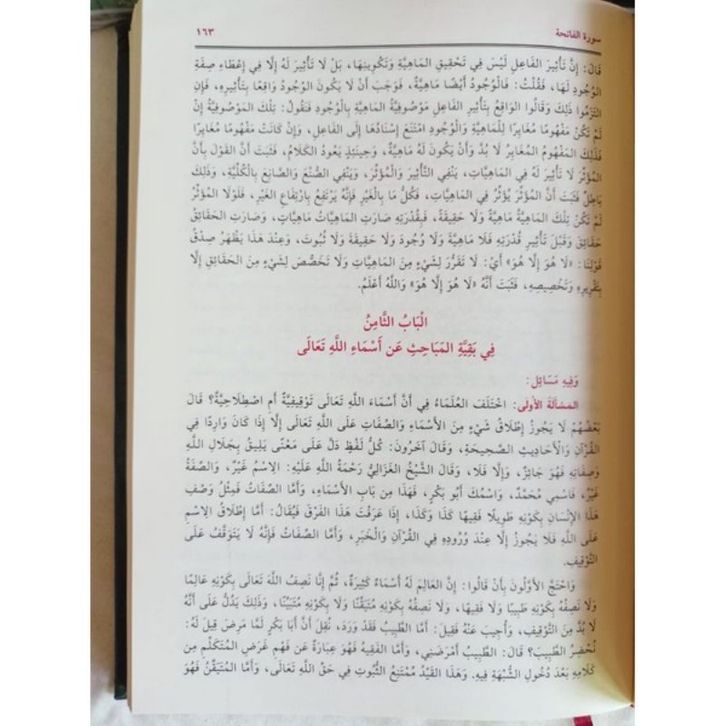 سورة الفاتحة
١٦٣
قَالَ: إِنَّ تَأْثِيرَ الْفَاعِلِ لَيْسَ فِي تَحْقِيقِ الْمَاهِيَّةِ وَتَكْوِينِهَا، بَلْ لَا تَأْثِيرَ لَهُ إِلَّا فِي إِعْطَاءِ صِفَةِ
الْوُجُودِ لَهَا، فَقُلْتُ: فَالْوُجُودُ أَيْضًا مَاهِيَّةٌ، فَوَجَبَ أَنْ لَا يَكُونَ الْوُجُودُ وَاقِعًا بِتَأْثِيرِهِ، فَإِنِ
الْتَزَمُوا ذَلِكَ وَقَالُوا الْوَاقِعُ بِتَأْثِيرِ الْفَاعِلِ مَوْصُوفِيَّةُ الْمَاهِيَّةِ بِالْوُجُودِ فَنَقُولُ: تِلْكَ الْمَوْصُوفِيَّةُ إِنْ
لَمْ تَكُنْ مَفْهُومًا مُغَايِرًا لِلْمَاهِيَّةِ وَالْوُجُودِ امْتَنَعَ إِسْنَادُهَا إِلَى الْفَاعِلِ، وَإِنْ كَانَتْ مَفْهُومًا مُغَايِرًا
فَذَلِكَ الْمَفْهُومُ الْمُغَايِرُ لَا بُدَّ وَأَنْ يَكُونَ لَهُ مَاهِيَّةٌ، وَحِينَئِذٍ يَعُودُ الْكَلَامُ، فَثَبَتَ أَنَّ الْقَوْلَ بِأَنَّ
الْمُؤَثِّرَ لَا تَأْثِيرَ لَهُ فِي الْمَاهِيَّاتِ، يَنْفِي التَّأْثِيرَ وَالْمُؤَثِّرَ، وَيَنْفِي الصُّنْعَ وَالصَّانِعَ بِالْكُلِّيَّةِ، وَذَلِكَ
بَاطِلٌ فَثَبَتَ أَنَّ الْمُؤَثِّرَ يُؤَثِّرُ فِي الْمَاهِيَّاتِ، فَكُلُّ مَا بِالْغَيْرِ فَإِنَّهُ يَرْتَفِعُ بِارْتِفَاعِ الْغَيْرِ، فَلَوْلَا الْمُؤَثِّرُ
لَمْ تَكُنْ تِلْكَ الْمَاهِيَّةُ مَاهِيَّةً وَلَا حَقِيقَةً، فَبِقُدْرَتِهِ صَارَتِ الْمَاهِيَّاتُ مَاهِيَّاتٍ، وَصَارَتِ الْحَقَائِقُ
حَقَائِقَ وَقَبْلَ تَأْثِيرِ قُدْرَتِهِ فَلَا مَاهِيَّةَ وَلَا وُجُودَ وَلَا حَقِيقَةَ وَلَا ثُبُوتَ، وَعِنْدَ هَذَا يَظْهَرُ صِدْقُ
قَوْلِنَا: «لَا هُوَ إِلَّا هُوَ» أَيْ: لَا تَقَرُّرَ لِشَيْءٍ مِنَ الْمَاهِيَّاتِ وَلَا تَخَصُّصَ لِشَيْءٍ مِنَ الْحَقَائِقِ إِلَّا
بِتَقْرِيرِهِ وَتَخْصِيصِهِ، فَثَبَتَ أَنَّهُ «لَا هُوَ إِلَّا هُوَ» وَاللَّهُ أَعْلَمُ.
الْبَابُ الثَّامِنُ
فِي بَقِيَّةِ الْمَبَاحِثِ عَنْ أَسْمَاءِ اللَّهِ تَعَالَى
وَفِيهِ مَسَائِلُ:
الْمَسْأَلَةُ الْأُولَى: اخْتَلَفَ الْعُلَمَاءُ فِي أَنَّ أَسْمَاءَ اللَّهِ تَعَالَى تَوْقِيفِيَّةٌ أَمِ اصْطِلَاحِيَّةٌ؟ قَالَ
بَعْضُهُمْ لَا يَجُوزُ إِطْلَاقُ شَيْءٍ مِنَ الْأَسْمَاءِ وَالصِّفَاتِ عَلَى اللَّهِ تَعَالَى إِلَّا إِذَا كَانَ وَارِدًا فِي
الْقُرْآنِ وَالْأَحَادِيثِ الصَّحِيحَةِ، وَقَالَ آخَرُونَ: كُلُّ لَفْظٍ دَلَّ عَلَى مَعْنًى يَلِيقُ بِجَلَالِ اللَّهِ
وَصِفَاتِهِ فَهُوَ جَائِزٌ، وَإِلَّا فَلَا، وَقَالَ الشَّيْخُ الْغَزَالِيُّ رَحْمَةُ اللَّهِ عَلَيْهِ: الِاسْمُ غَيْرٌ، وَالصِّفَةُ
غَيْرٌ، فَاسْمِي مُحَمَّدٌ، وَاسْمُكَ أَبُو بَكْرٍ، فَهَذَا مِنْ بَابِ الْأَسْمَاءِ، وَأَمَّا الصِّفَاتُ فَمِثْلُ وَصْفِ
هَذَا الْإِنْسَانِ بِكَوْنِهِ طَوِيلًا فَقِيهًا كَذَا وَكَذَا، إِذَا عَرَفْتَ هَذَا الْفَرْقَ فَيُقَالُ: أَمَّا إِطْلَاقُ الِاسْمِ
عَلَى اللَّهِ فَلَا يَجُوزُ إِلَّا عِنْدَ وُرُودِهِ فِي الْقُرْآنِ وَالْخَبَرِ، وَأَمَّا الصِّفَاتُ فَإِنَّهُ لَا يَتَوَقَّفُ عَلَى
التَّوْقِيفِ.
وَاحْتَجَّ الْأَوَّلُونَ بِأَنْ قَالُوا: إِنَّ الْعَالِمَ لَهُ أَسْمَاءٌ كَثِيرَةٌ، ثُمَّ إِنَّا نَصِفُ اللَّهَ تَعَالَى بِكَوْنِهِ عَالِمًا
وَلَا نَصِفُهُ بِكَوْنِهِ طَبِيبًا وَلَا فَقِيهًا، وَلَا نَصِفُهُ بِكَوْنِهِ مُتَيَقِّنًا وَلَا بِكَوْنِهِ مُتَبَيِّنًا، وَذَلِكَ يَدُلُّ عَلَى أَنَّهُ
لَا بُدَّ مِنَ التَّوْقِيفِ، وَأُجِيبَ عَنْهُ فَقِيلَ: أَمَّا الطَّبِيبُ فَقَدْ وَرَدَ، نُقِلَ أَنَّ أَبَا بَكْرٍ لَمَّا مَرِضَ قِيلَ لَهُ:
نُحْضِرُ الطَّبِيبَ؟ قَالَ: الطَّبِيبُ أَمْرَضَنِي، وَأَمَّا الْفَقِيهُ فَهُوَ عِبَارَةٌ عَنْ فَهْمِ غَرَضِ الْمُتَكَلِّمِ مِنْ
كَلَامِهِ بَعْدَ دُخُولِ الشُّبْهَةِ فِيهِ. وَهَذَا الْقَيْدُ مُمْتَنِعُ الثُّبُوتِ فِي حَقِّ اللَّهِ تَعَالَى، وَأَمَّا الْمُتَيَقِّنُ فَهُوَ